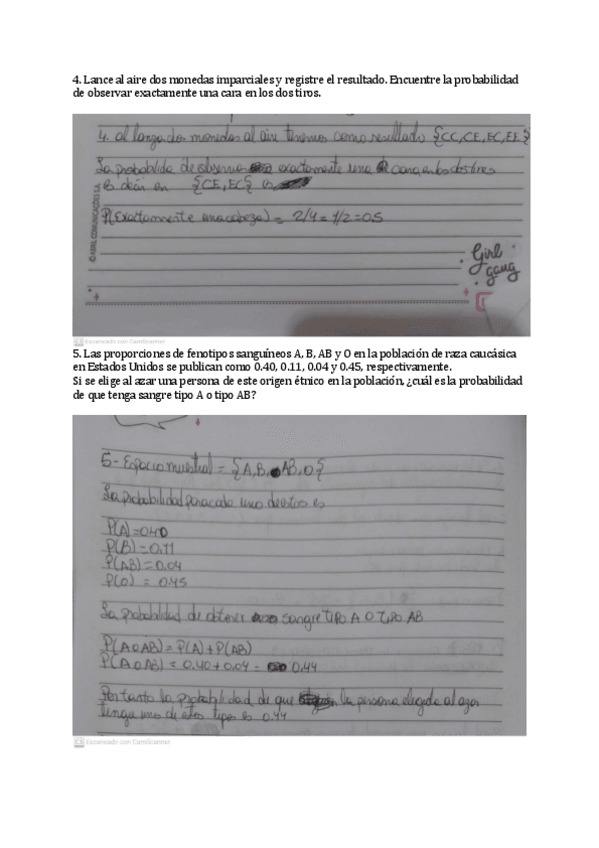 4. Lance al aire dos monedas imparciales y registre el resultado. Encuentre la probabilidad
de observar exactamente una cara en los dos tiros.
4. al lanzar dos monedas al aire tenemos como resultado {CC,CE,EC,EE}
La probablida de observar exactamente una cara en los dos tiros
es decir en {CE,EC} es
P(Exactamente una cabeza) = 2/4 = 1/2 = 0.5
© ABRIL COMUNICAÇÕES S.A.
Girl
gang
CS Escaneado con CamScanner
5. Las proporciones de fenotipos sanguíneos A, B, AB y O en la población de raza caucásica
en Estados Unidos se publican como 0.40, 0.11, 0.04 y 0.45, respectivamente.
Si se elige al azar una persona de este origen étnico en la población, ¿cuál es la probabilidad
de que tenga sangre tipo A o tipo AB?
5- Espacio muestral = {A,B, AB,O}
La probabilidad para cada uno de estos es
P(A)=0.40
P(B)=0.11
P(AB)=0.04
P(O) = 0.45
La probabilidad de obtener sangre tipo A O tipo AB
P(A O AB) = P(A)+P(AB)
P(A O AB) = 0.40+0.04 = 0.44
Por tanto la probabilidad de que la persona elegida al azar
tenga uno de estos tipos es 0.44
CS Escaneado con CamScanner